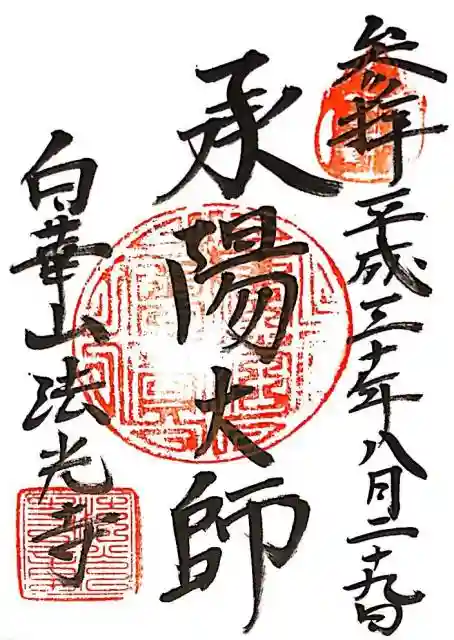 参拝 平成三十年八月二十九日
承陽大師
白華山法光寺